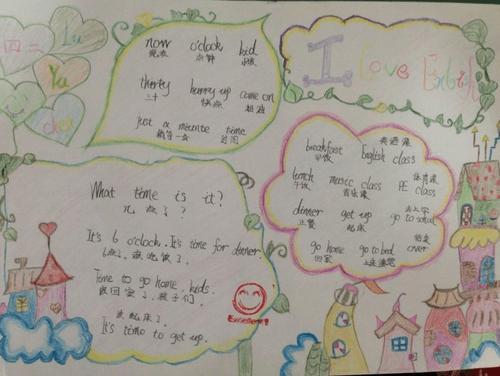 四二
Lu
Yu
chen
now o'clock kid
现在 点钟 小孩
thirty hurry up come on
三十 快点 加油
just a minute time
稍等一会 时间
I Love English
breakfast English class
早饭 英语课
lunch music class PE class
午饭 音乐课 体育课
dinner get up go to school
正餐 起床 去上学
go home go to bed over
回家 上床睡觉 结束
What time is it?
几点了?
It's 6 o'clock. It's time for dinner.
6点了,该吃饭了。
Time to go home, kids.
该回家了,孩子们。
该起床了。
It's time to get up.
Excellent!